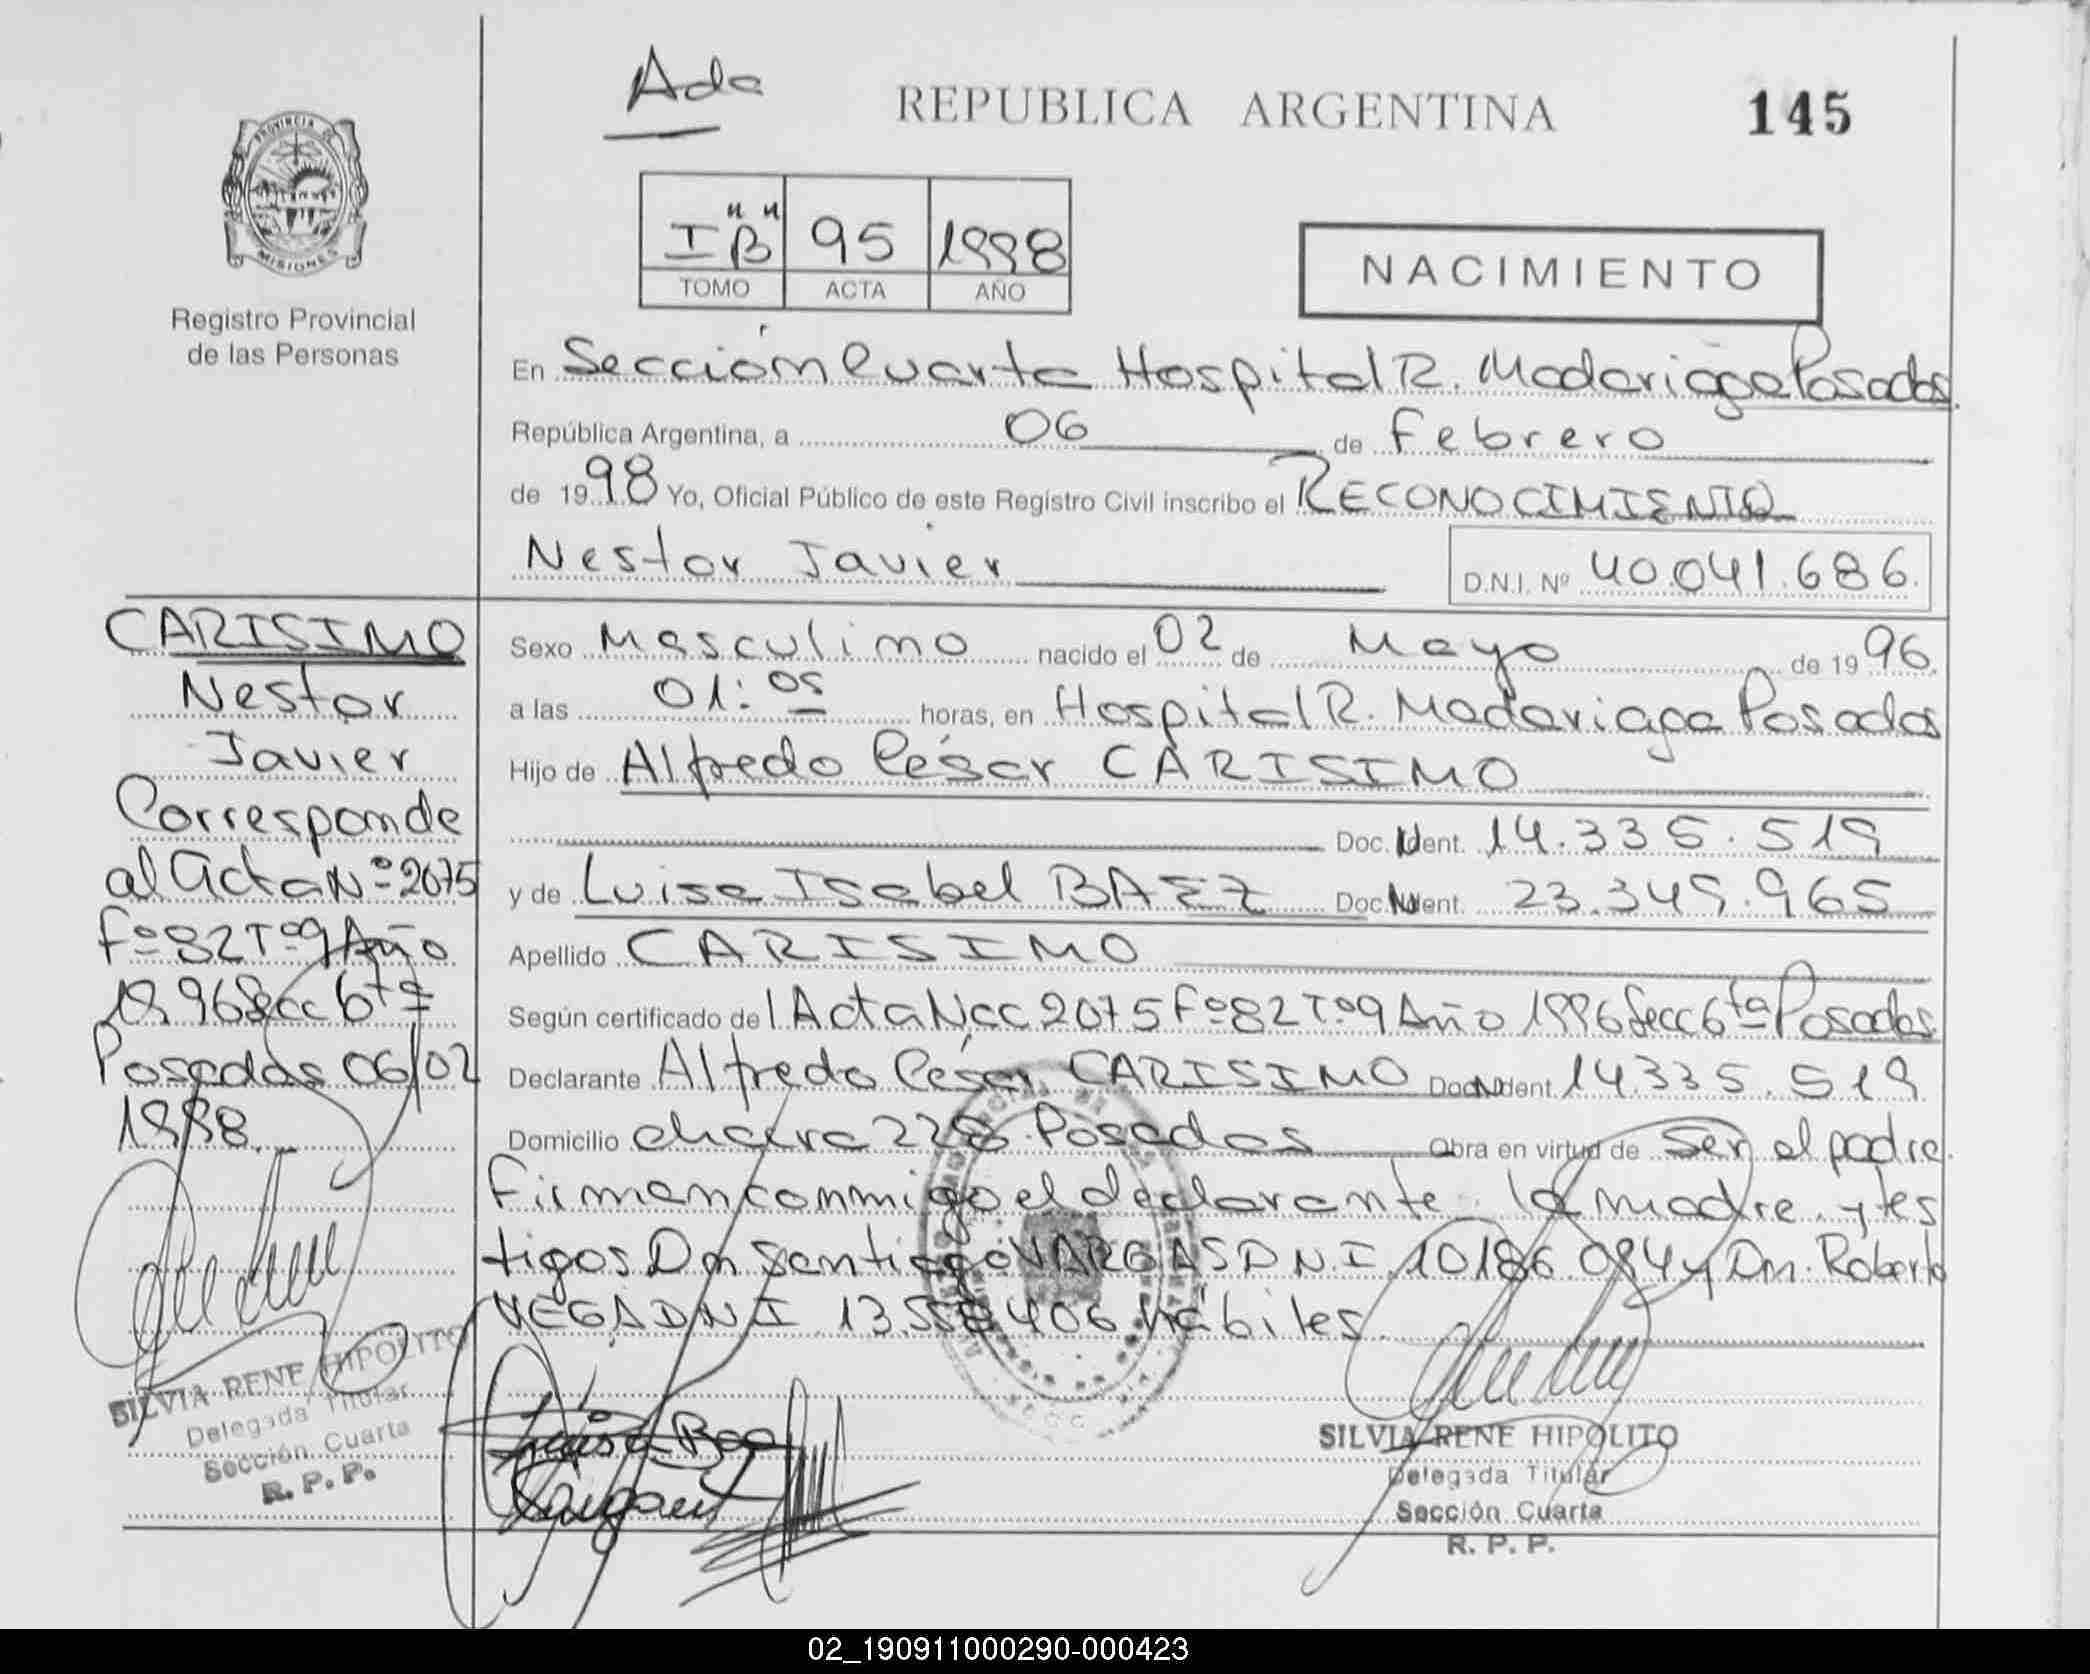 Ada
REPUBLICA ARGENTINA
145
PROVINCIA DE
MISIONES
Registro Provincial
de las Personas
I "B" 95 1998
TOMO ACTA AÑO
NACIMIENTO
En Sección Cuarta Hospital R. Madariaga Posadas.
República Argentina, a 06 de Febrero
de 1998 Yo, Oficial Público de este Registro Civil inscribo el RECONOCIMIENTO
Nestor Javier
D.N.I. Nº 40.041.686.
CARISIMO
Nestor
Javier
Corresponde
al acta Nº 2075
Fº 82 Tº 9 Año
1996 Secc 6ta
Posadas 06/02
1998.
SILVIA RENE HIPOLITO
Delegada Titular
Sección Cuarta
R. P. P.
Sexo Masculino nacido el 02 de Mayo de 1996.
a las 01:05 horas, en Hospital R. Madariaga Posadas
Hijo de Alfredo César CARISIMO
Doc. Ident. 14.335.519
y de Luisa Isabel BAEZ Doc. Ident. 23.349.965
Apellido CARISIMO
Según certificado del Acta Nac 2075 Fº 82 Tº 9 Año 1996 Secc 6ta Posadas
Declarante Alfredo César CARISIMO Doc. Ident. 14.335.519
Domicilio chacra 228. Posadas Obra en virtud de Ser el padre.
Firman conmigo el declarante, la madre y tes
tigos Dn Santiago VARGAS DNI 10186.084 y Dn. Roberto
VEGA DNI 13.558406 hábiles.
Luisa Bae
SILVIA RENE HIPOLITO
Delegada Titular
Sección Cuarta
R. P. P.
02_190911000290-000423